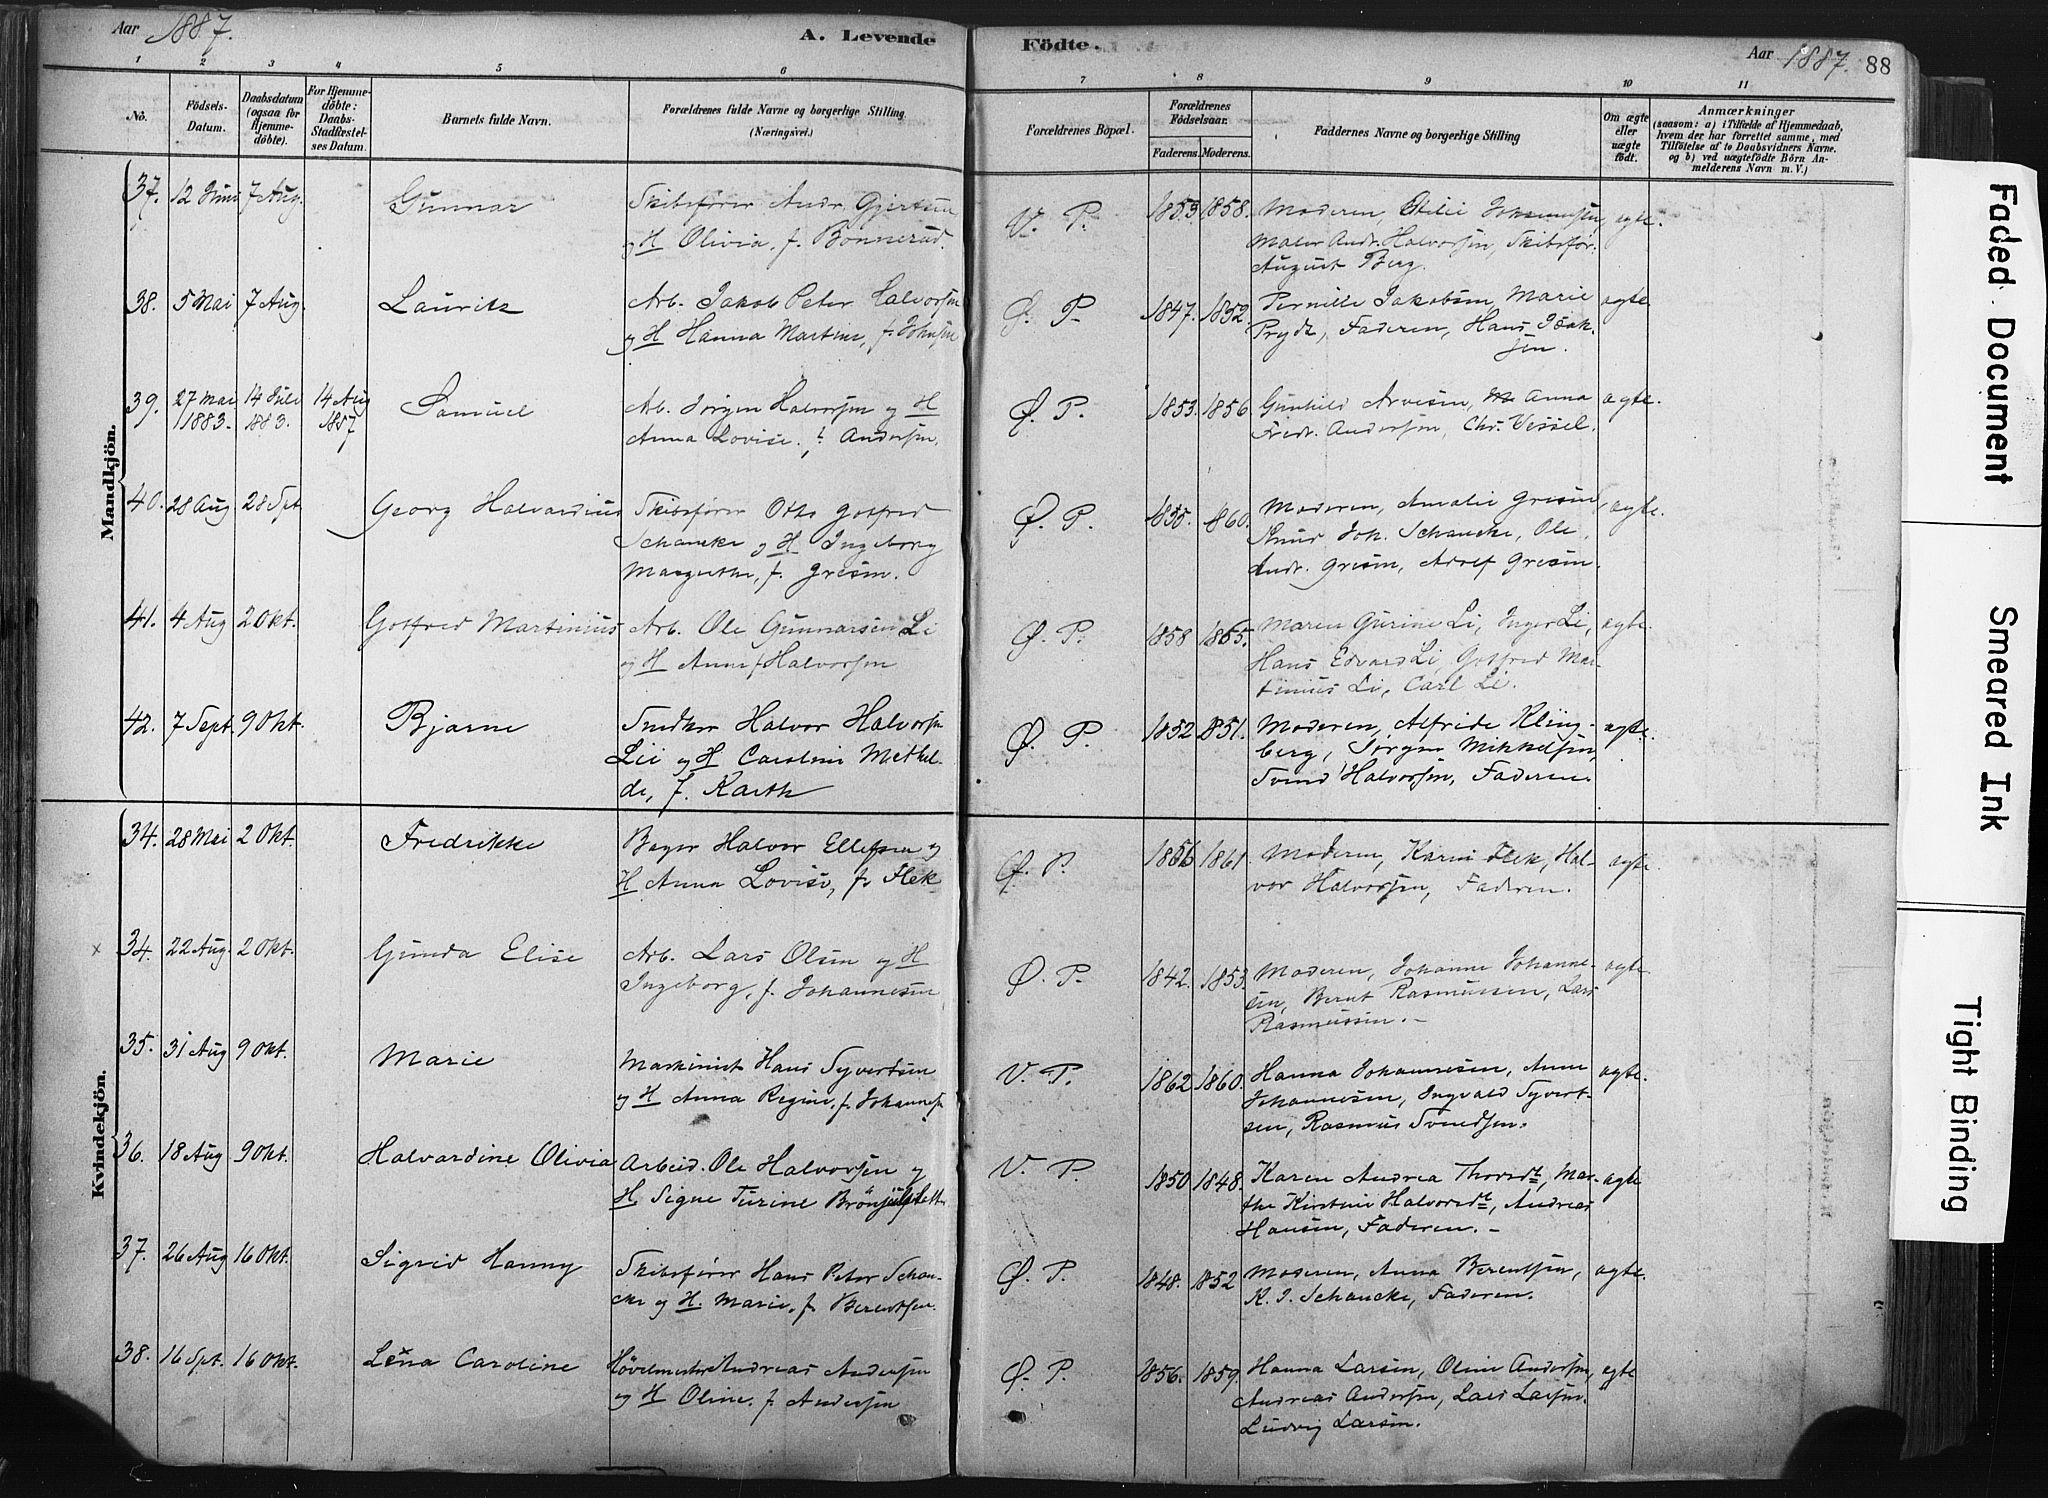 Aar 1887.
A. Levende
Födte.
Aar 1887. 88
1 2 3 4 5 6 7 8 9 10 11
No.
Födsels-Datum.
Daabsdatum (ogsaa for Hjemmedöbte).
For Hjemmedöbte: Daabs-Stadfæstelses Datum.
Barnets fulde Navn.
Forældrenes fulde Navne og borgerlige Stilling.
(Næringsvei.)
Forældrenes Bopæl.
Forældrenes Födselsaar.
Faderens. Moderens.
Faddernes Navne og borgerlige Stilling
Om ægte eller uægte födt.
Anmærkninger
(saasom: a) i Tilfælde af Hjemmedaab,
hvem der har forrettet samme, med
Tilföielse af to Daabsvidners Navne.
og b) ved uægtefödte Börn Anmelderens Navn m. V.)
Mandkjön.
37. 12 Juni 7 Aug. Gunnar
Skibsfører Andr. Gjertsen
og H Olivia, f. Bonnerud.
V. P. 1853 1858. Moderen, Otilie Johannesen, ægte.
Maler Andr. Halvorsen, Skibsfør.
August Berg.
38. 5 Mai 7 Aug. Lauritz
Arb. Jakob Peter Halvorsen
og H Hanna Martine, f. Johnsen
Ø. P. 1847. 1852. Pernille Jakobsen, Marie ægte
Prydz, Faderen, Hans Isak-
sen.
39. 27 Mai 1883. 14 Juli 1883. 14 Aug 1887 Samuel
Arb. Jørgen Halvorsen og H
Anna Lovise, f. Andersen.
Ø. P. 1853. 1856 Gunhild Arvesen, Anna ægte.
Fredr. Andersen, Chr. Wessel.
40. 28 Aug 28 Spt Georg Halvardius
Skibsfører Otto Gotfred
Schancke og H Ingeborg
Margrethe, f. Gresen.
Ø. P. 1855. 1860. Moderen, Amalie Gresen, ægte.
Knud Joh. Schancke, Ole
Andr. Gresen, Adolf Gresen.
41. 4 Aug 2 Okt. Gotfred Martinius
Arb. Ole Gunnarsen Li
og H Anne f Halvorsen
Ø. P. 1858 1865. Maren Gurine Li, Inger Li, ægte.
Hans Edvard Li, Gotfred Mar-
tinius Li, Carl Li.
42. 7 Sept. 9 Okt. Bjarne
Snedker Halvor Halvorsen
Lii og H Caroline Methel-
de, f. Karth
Ø. P. 1852 1851. Moderen, Alfride Kling- ægte.
berg, Jørgen Mikkelsen,
Svend Halvorsen, Faderen.
Kvindekjön.
34. 28 Mai 2 Okt. Fredrikke
Bager Halvor Ellefsen og
H Anna Lovise, f. Flek
Ø. P. 1856 1861. Moderen, Karen Flek, Hal- ægte.
vor Halvorsen, Faderen.
x 34. 22 Aug. 2 Okt. Gunda Elise
Arb. Lars Olsen og H
Ingeborg, f. Johannesen
Ø. P. 1842. 1853. Moderen, Johanne Johanne- ægte
sen, Bernt Rasmussen, Lars
Rasmussen. -
35. 31 Aug 9 Okt. Marie
Maskinist Hans Syvertsen
og H Anna Regine, f. Johannesen
V. P. 1862 1860. Hanna Johannesen, Anne ægte.
Johannesen, Ingvald Syvert-
sen, Rasmus Svendsen.
36. 18 Aug 9 Okt. Halvardine Olivia
Arbeid. Ole Halvorsen og
H Signe Turine
V. P. 1850 1848. Karen Andrea Thorsdt, Mar- ægte
the Kirstine Halvorsdt, Andreas
Hansen, Faderen. -
37. 26 Aug 16 Okt. Sigrid Hanny
Skibsfører Hans Peter Schan-
cke og H. Marie, f. Berentsen.
Ø. P. 1848. 1852 Moderen, Anna Berentsen, ægte.
K. J. Schancke, Faderen.
38. 16 Spt. 16 Okt. Lena Caroline
Høvelmester Andreas Andersen
og H Oline. f. Andersen
Ø. P. 1856. 1859. Hanna Larsen, Oline Andersen, ægte
Andreas Andersen, Lars Larsen.
Ludvig Larsen.
Faded Document
Smeared Ink
Tight Binding